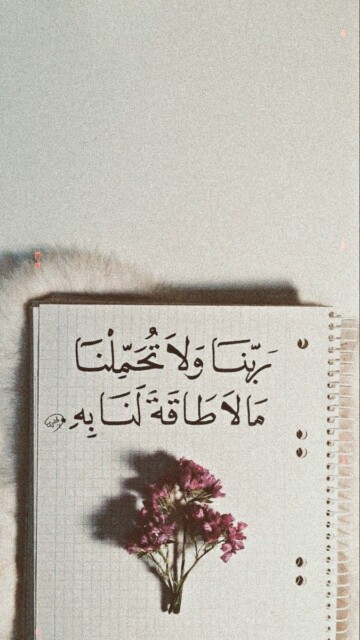 رَبَّنَا وَلَا تُحَمِّلْنَا
مَا لَا طَاقَةَ لَنَا بِهِ